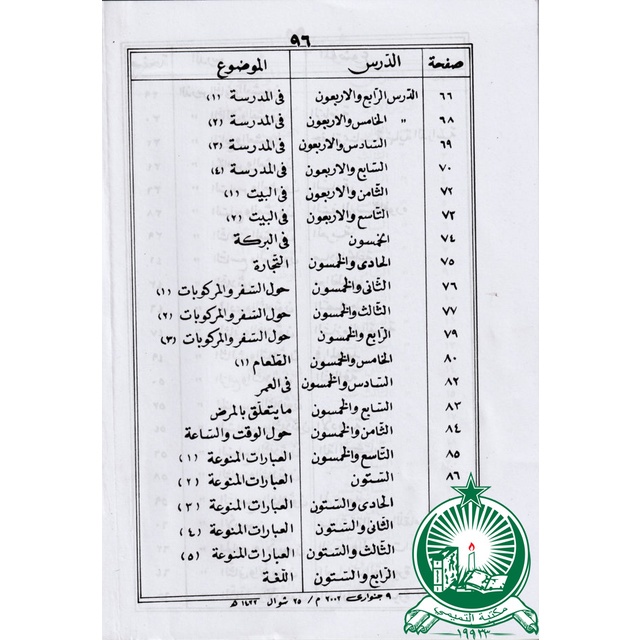 ٩٦
صفحة الدّرس الموضوع
٦٦ الدّرس الرّابع والاربعون فى المدرسة (١)
٦٨ " الخامس والاربعون فى المدرسة (٢)
٦٩ السّادس والاربعون فى المدرسة (٣)
٧٠ السّابع والاربعون فى المدرسة (٤)
٧٢ الثّامن والاربعون فى البيت (١)
٧٣ التّاسع والاربعون فى البيت (٢)
٧٤ الخمسون فى البركة
٧٥ الحادى والخمسون التّجارة
٧٦ الثّانى والخمسون حول السّفر والمركوبات (١)
٧٧ الثّالث والخمسون حول السّفر والمركوبات (٢)
٧٩ الرّابع والخمسون حول السّفر والمركوبات (٣)
٨٠ الخامس والخمسون الطّعام (١)
٨٢ السّادس والخمسون فى العمر
٨٣ السّابع والخمسون ما يتعلّق بالمرض
٨٤ الثّامن والخمسون حول الوقت والسّاعة
٨٥ التّاسع والخمسون العبارات المنوعة (١)
٨٦ السّتون العبارات المنوعة (٢)
الحادى والسّتون العبارات المنوعة (٣)
الثّانى والسّتون العبارات المنوعة (٤)
الثّالث والسّتون العبارات المنوعة (٥)
الرّابع والسّتون اللّغة
٩ جنوارى ٢٠٠٢ م / ٢٥ شوال ١٤٢٢ ھ
مكتبة التميمي
١٩٩٢٣